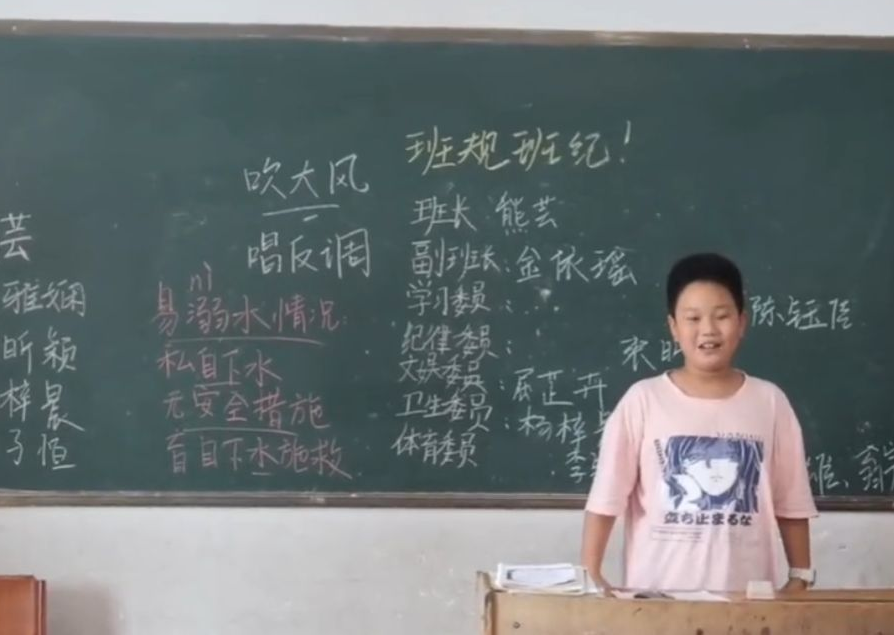 芸
雅娴
昕颖
梓晨
子恒
吹大风
唱反调
易溺水情况:
私自下水
无安全措施
盲自下水施救
班规班纪!
班长 熊芸
副班长:金依瑶
学习委员:
陈钰
纪律委员:
文娱委员:屈芷卉
卫生委员:杨梓
体育委员
李
立ち止まるな